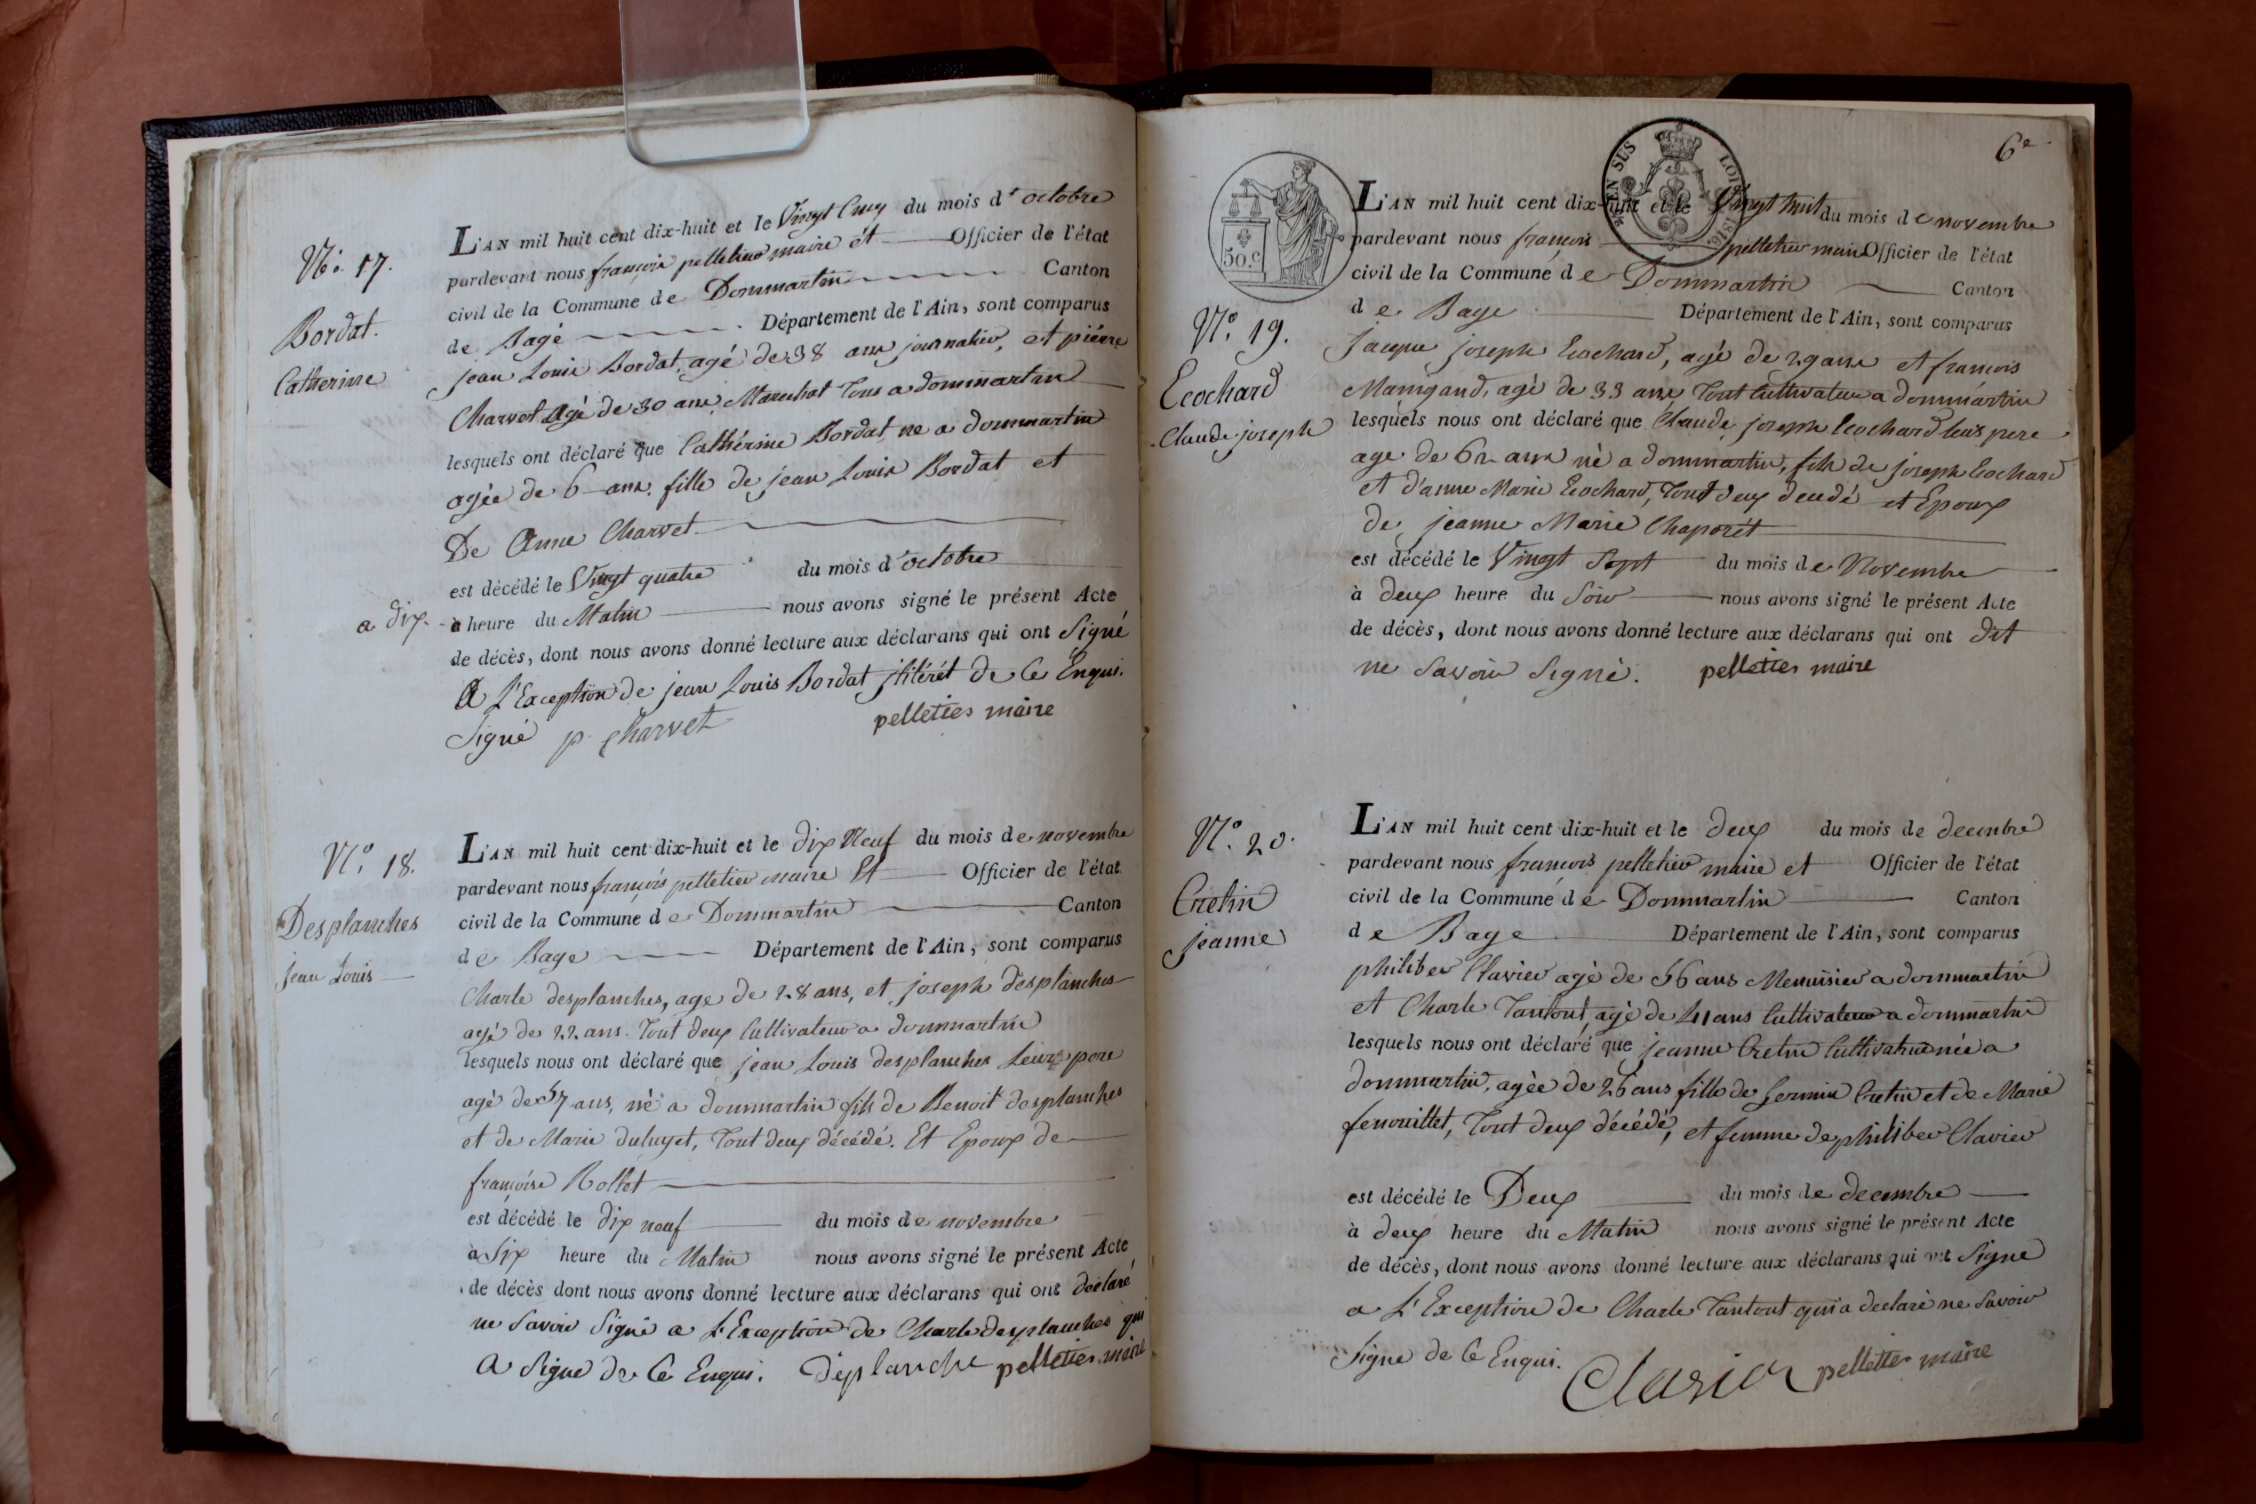 N.o 17.
Bordat.
Catherine
L'AN mil huit cent dix-huit et le Vingt Cinq du mois d'octobre
pardevant nous françois pelletier maire et Officier de l'état
civil de la Commune de Dommartin Canton
de Bagé Département de l'Ain, sont comparus
jean Louis Bordat, agé de 38 ans journalier, et pierre
Charvet agé de 30 ans, Marechal Tous a dommartin
lesquels ont déclaré que Cathérine Bordat ne a dommartin
agée de 6 ans. fille de jean Louis Bordat et
De Anne Charvet
est décédé le Vingt quatre du mois d'octobre
a dix à heure du Matin nous avons signé le présent Acte
de décès, dont nous avons donné lecture aux déclarans qui ont Signé
a L'Exception de jean Louis Bordat de Ce Enqui.
Signé p. charvet pelletier maire
N.o 18.
Desplanches
jean Louis
L'AN mil huit cent dix-huit et le dix Neuf du mois de novembre
pardevant nous françois pelletier maire Et Officier de l'état
civil de la Commune de Dommartin Canton
de Bage Département de l'Ain, sont comparus
Charle desplanches, age de 28 ans, et joseph desplanches
agé de 22 ans. Tout deux Cultivateur a dommartin
lesquels nous ont déclaré que jean Louis desplanches Leur pere
agé de 57 ans, né a dommartin fils de Benoit desplanches
et de Marie duluyet, Tout deux décédé. Et Epoux de
françoise Rollet
est décédé le dix neuf du mois de novembre
à Six heure du Matin nous avons signé le présent Acte
de décès dont nous avons donné lecture aux déclarans qui ont declaré
ne Savoir Signé a L'Exception de Charle desplanches qui
a Signé de Ce Enqui. deplanche pelletier maire
6e
50.c
EN SUS
1816
N.o 19.
Ecochard
Claude joseph
L'AN mil huit cent dix-huit et le Vingt huit du mois de novembre
pardevant nous françois pelletier maire Officier de l'état
civil de la Commune de Dommartin Canton
de Bage Département de l'Ain, sont comparus
jacque joseph Ecochard, agé de 29 ans et françois
Maingaud, agé de 33 ans Tout Cultivateur a dommartin
lesquels nous ont déclaré que Claude joseph Ecochard leur pere
age de 62 ans né a dommartin, fils de joseph Ecochard
et d'anne Marie Ecochard, Tout deux decedé et Epoux
de jeanne Marie Chaporét
est décédé le Vingt Sept du mois de Novembre
à deux heure du Soir nous avons signé le présent Acte
de décès, dont nous avons donné lecture aux déclarans qui ont dit
ne Savoir Signé. pelletier maire
N.o 20.
Cretin
jeanne
L'AN mil huit cent dix-huit et le deux du mois de decembre
pardevant nous françois pelletier maire et Officier de l'état
civil de la Commune de Dommartin Canton
de Bage Département de l'Ain, sont comparus
philiber Clavier agé de 56 ans Menuisier a dommartin
et Charle Tantout agé de 41 ans Cultivateur a dommartin
lesquels nous ont déclaré que jeanne Cretin Cultivatrice née a
dommartin, agée de 26 ans fille de Cretin et de Marie
fenouillet, Tout deux décédé, et femme de philiber Clavier
est décédé le Deux du mois de decembre
à deux heure du Matin nous avons signé le présent Acte
de décès, dont nous avons donné lecture aux déclarans qui ont Signe
a L'Exception de Charle Tantout qui a declaré ne Savoir
Signe de Ce Enqui. Clavier pelletier maire